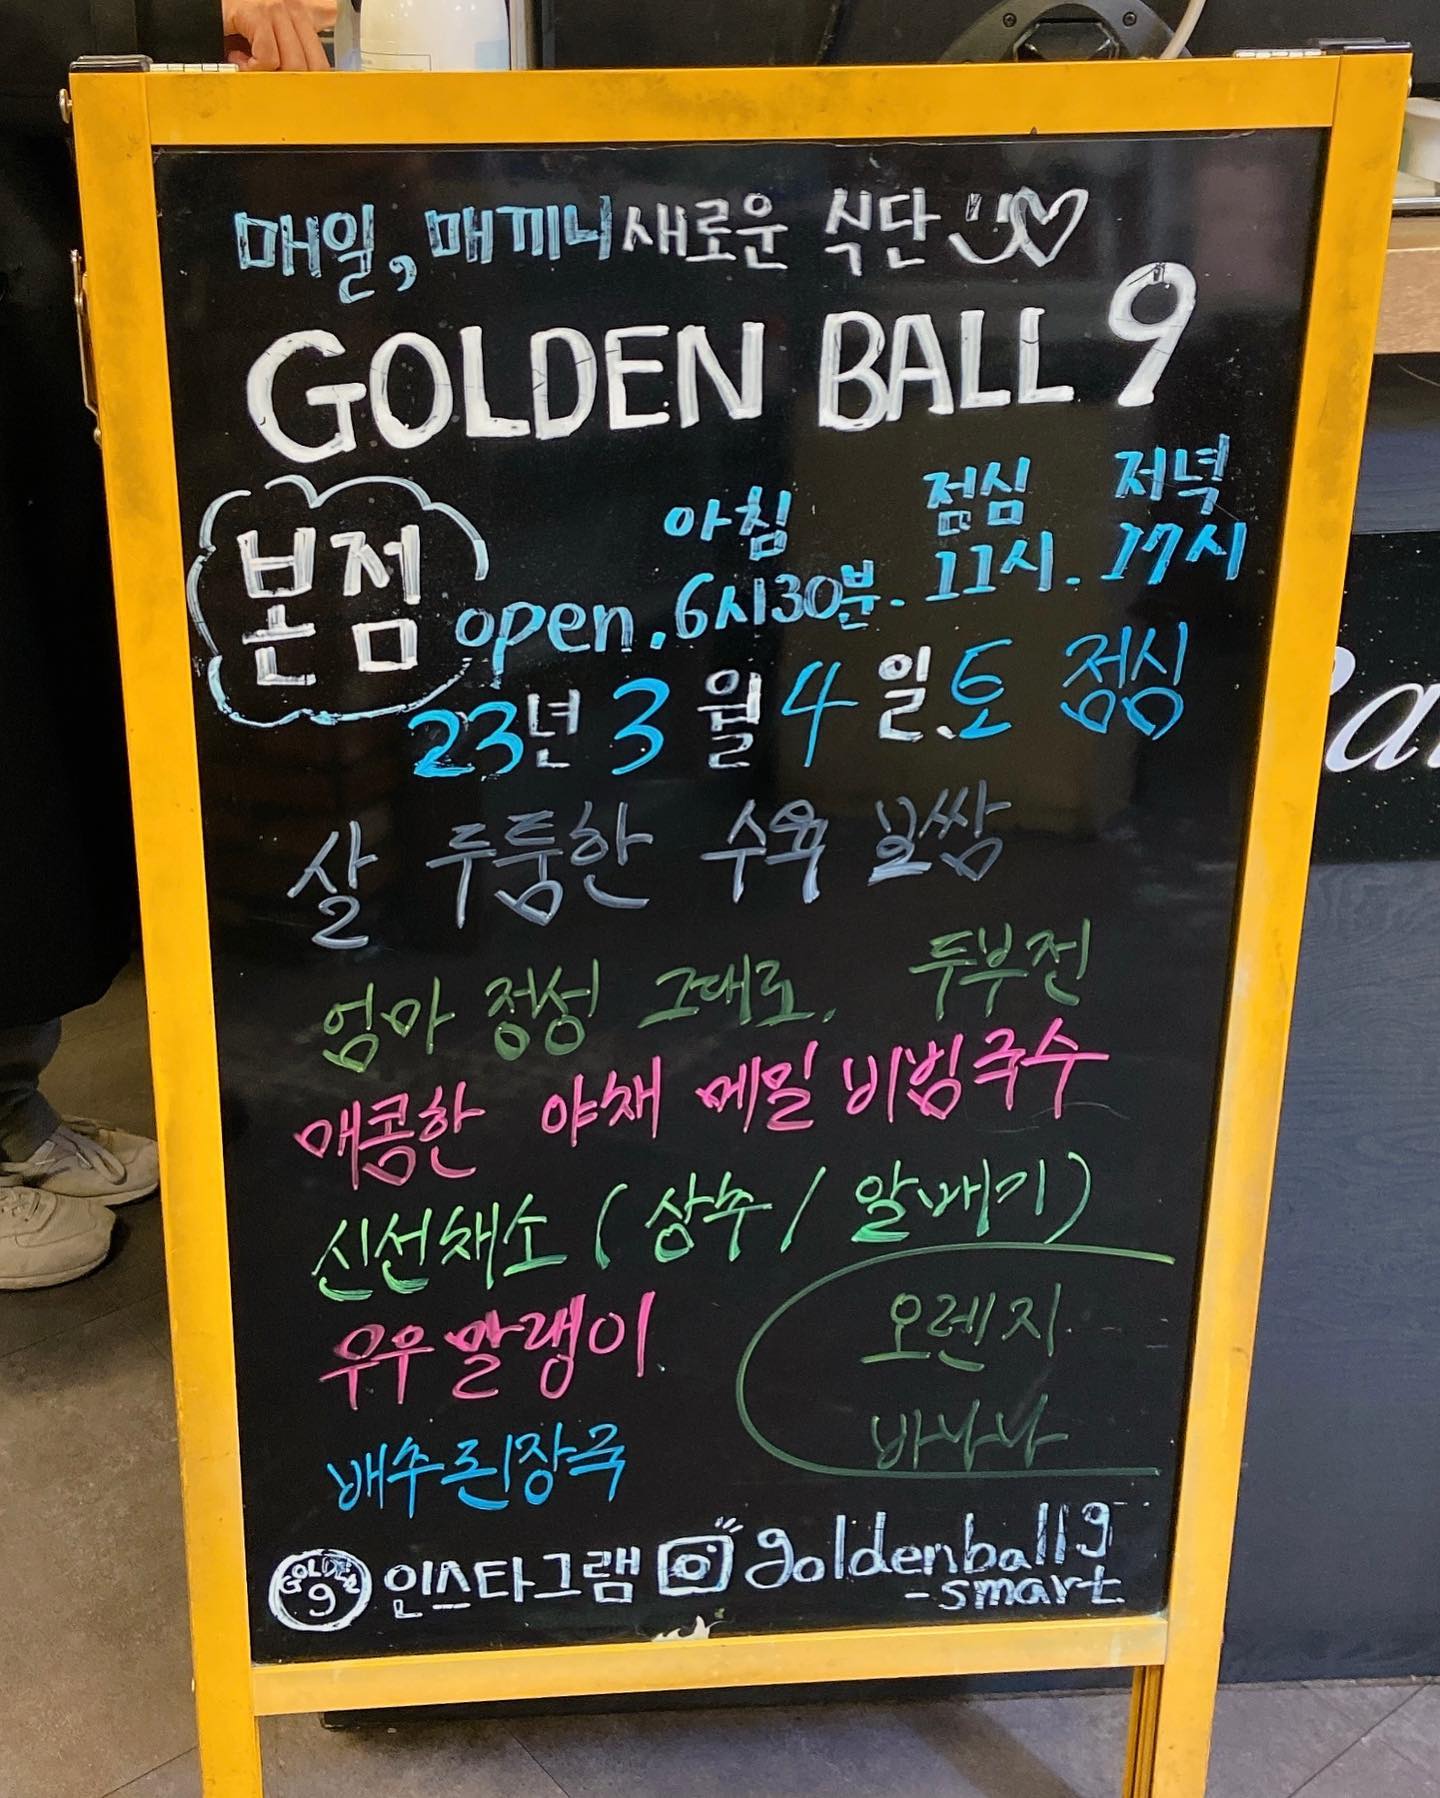 매일, 매끼니 새로운 식단
GOLDEN BALL 9
본점
아침 점심 저녁
open. 6시30분. 11시. 17시
23년 3월 4일. 토 점심
살 두툼한 수육 보쌈
엄마 정성 그대로. 두부전
매콤한 야채 메밀 비빔국수
신선채소 (상추/알배기)
우우말랭이
오렌지
바나나
배추된장국
GOLDEN 9
인스타그램 goldenball9
-smart